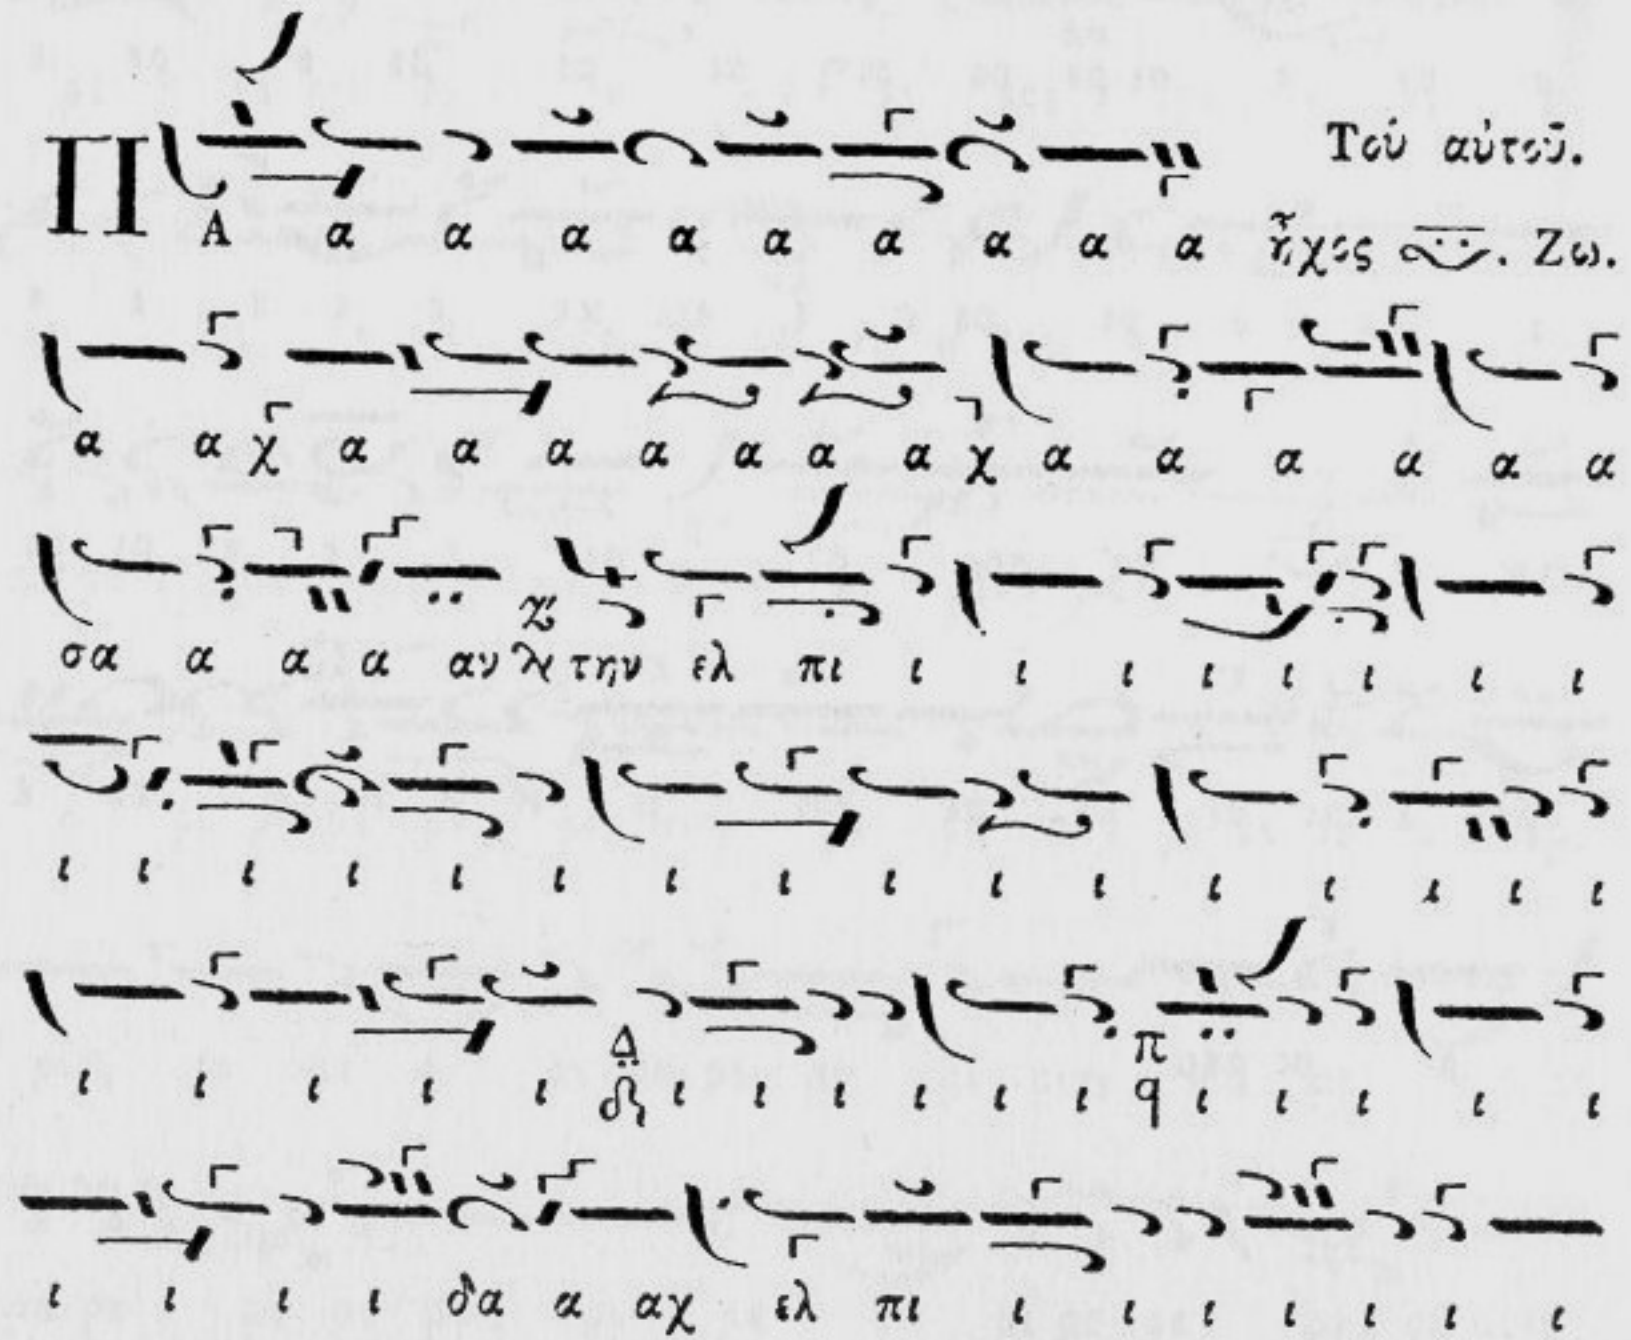 Τοῦ αὐτοῦ.
Π Α α α α α α α α α α ἦχος Ζω.
α α χ α α α α α α α χ α α α α α α
σα α α α αν ϗ την ελ πι ι ι ι ι ι ι ι ι
ι ι ι ι ι ι ι ι ι ι ι ι ι ι ι ι
Δ π
ι ι ι ι ι ι ι ι ι ι ι q ι ι ι ι ι
ι ι ι ι δα α αχ ελ πι ι ι ι ι ι ι